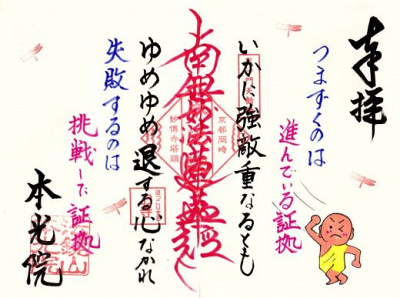 奉拝
つまずくのは
進んでいる証拠
いかに強敵重なるとも
京都岡崎
南無妙法蓮華経
妙傳寺塔頭
ゆめゆめ退する心なかれ
失敗するのは
挑戦した証拠
本光院